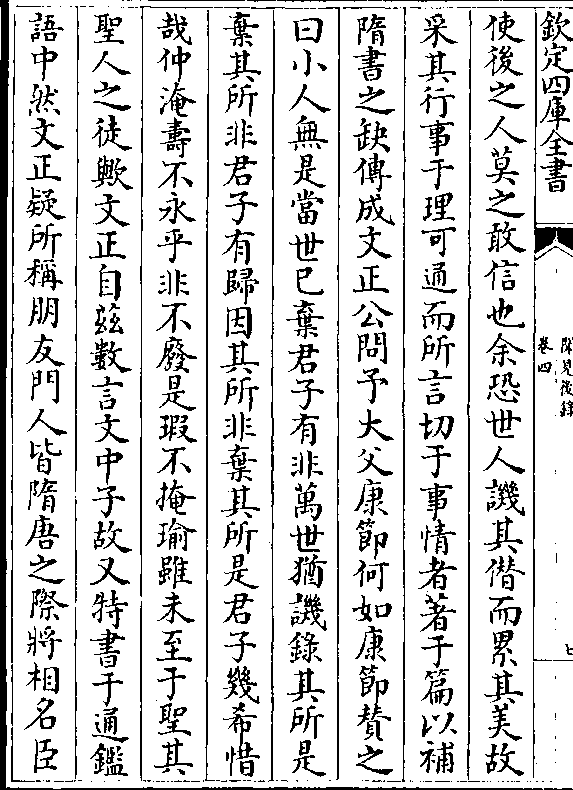 欽定四庫全書
聞見後錄
卷四
七
使後之人莫之敢信也余恐世人譏其僣而累其美故
采其行事于理可通而所言切于事情者著于篇以補
隋書之缺傳成文正公問予大父康節何如康節賛之
曰小人無是當世已棄君子有非萬世猶譏錄其所是
棄其所非君子有歸因其所非棄其所是君子幾希惜
哉仲淹壽不永乎非不廢是瑕不掩瑜雖未至于聖其
聖人之徒歟文正自兹數言文中子故又特書于通鑑
語中然文正疑所稱朋友門人皆隋唐之際將相名臣